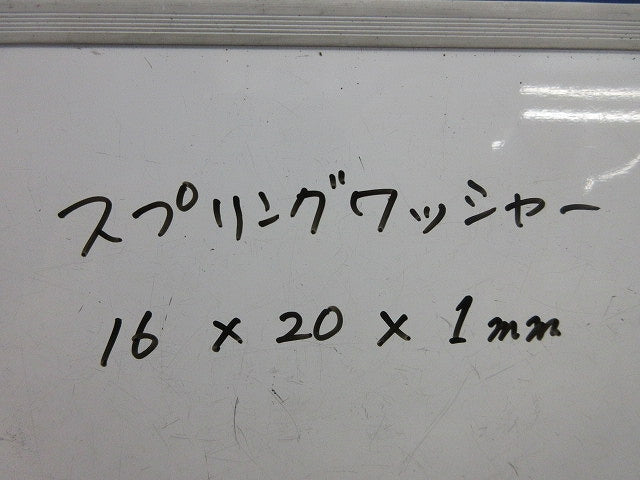 スプリングワッシャー
16 × 20 × 1mm